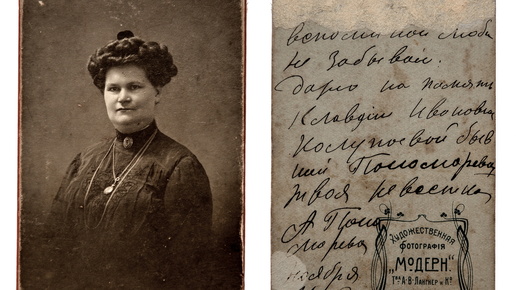 вспоминай люби
не забывай.
Дарю на память
Клавдіи Ивановны
Колупаевой быв
шей Пономаревой
твоя невестка
А Поно
марева
ноября
ХУДОЖЕСТВЕННАЯ
ФОТОГРАФІЯ
„МОДЕРНЪ"
Т-ва А. В. ЛАНГНЕР и Ко.